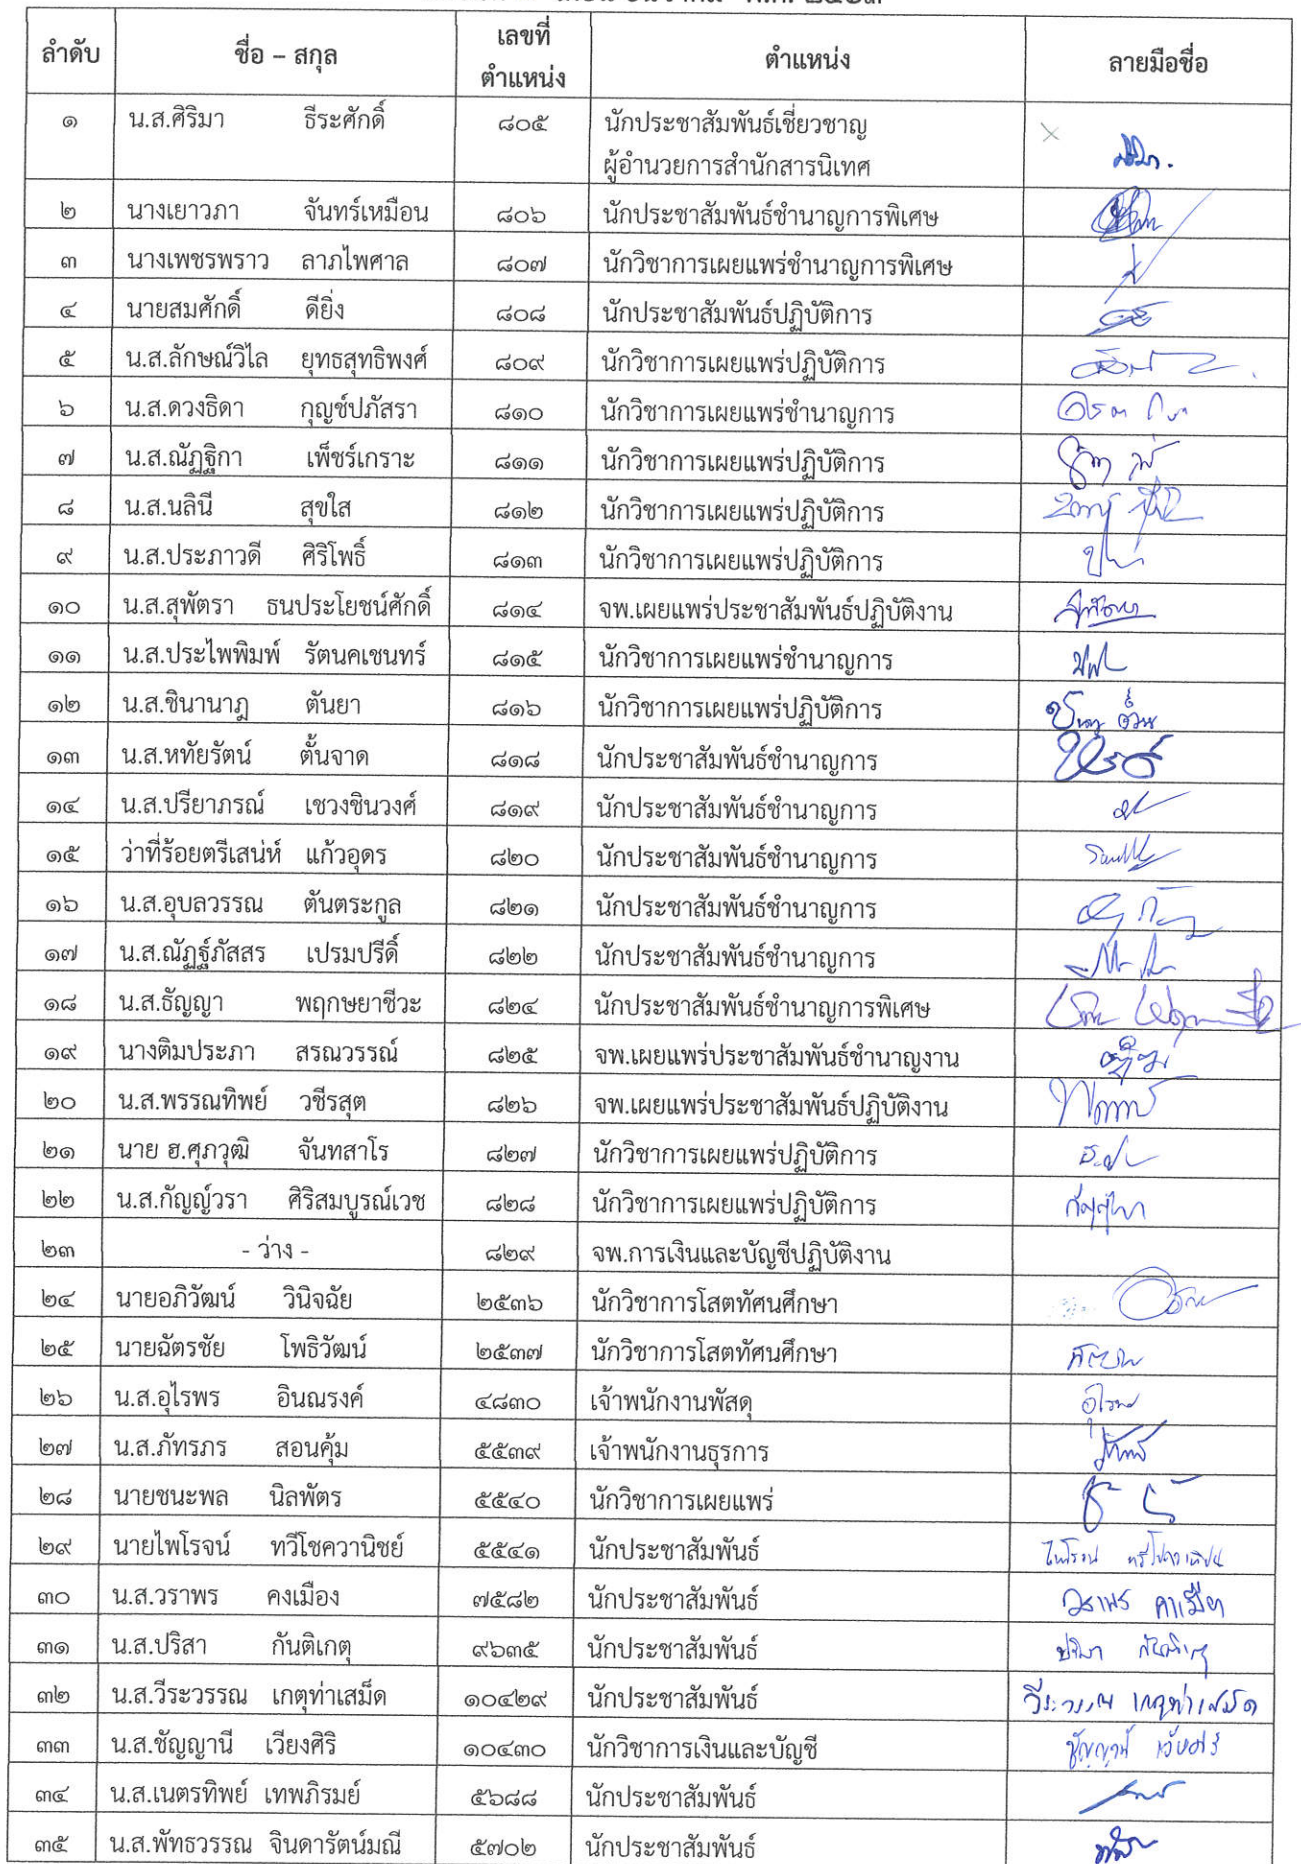 ลำดับ ชื่อ – สกุล เลขที่ตำแหน่ง ตำแหน่ง ลายมือชื่อ
๑ น.ส.ศิริมา ธีระศักดิ์ ๘๐๕ นักประชาสัมพันธ์เชี่ยวชาญ
ผู้อำนวยการสำนักสารนิเทศ
๒ นางเยาวภา จันทร์เหมือน ๘๐๖ นักประชาสัมพันธ์ชำนาญการพิเศษ
๓ นางเพชรพราว ลาภไพศาล ๘๐๗ นักวิชาการเผยแพร่ชำนาญการพิเศษ
๔ นายสมศักดิ์ ดียิ่ง ๘๐๘ นักประชาสัมพันธ์ปฏิบัติการ
๕ น.ส.ลักษณ์วิไล ยุทธสุทธิพงศ์ ๘๐๙ นักวิชาการเผยแพร่ปฏิบัติการ
๖ น.ส.ดวงธิดา กุญช์ปภัสรา ๘๑๐ นักวิชาการเผยแพร่ชำนาญการ
๗ น.ส.ณัฏฐิกา เพ็ชร์เกราะ ๘๑๑ นักวิชาการเผยแพร่ปฏิบัติการ
๘ น.ส.นลินี สุขใส ๘๑๒ นักวิชาการเผยแพร่ปฏิบัติการ
๙ น.ส.ประภาวดี ศิริโพธิ์ ๘๑๓ นักวิชาการเผยแพร่ปฏิบัติการ
๑๐ น.ส.สุพัตรา ธนประโยชน์ศักดิ์ ๘๑๔ จพ.เผยแพร่ประชาสัมพันธ์ปฏิบัติงาน
๑๑ น.ส.ประไพพิมพ์ รัตนคเชนทร์ ๘๑๕ นักวิชาการเผยแพร่ชำนาญการ
๑๒ น.ส.ชินานาฎ ตันยา ๘๑๖ นักวิชาการเผยแพร่ปฏิบัติการ
๑๓ น.ส.หทัยรัตน์ ตั้นจาด ๘๑๘ นักประชาสัมพันธ์ชำนาญการ
๑๔ น.ส.ปรียาภรณ์ เชวงชินวงศ์ ๘๑๙ นักประชาสัมพันธ์ชำนาญการ
๑๕ ว่าที่ร้อยตรีเสน่ห์ แก้วอุดร ๘๒๐ นักประชาสัมพันธ์ชำนาญการ
๑๖ น.ส.อุบลวรรณ ตันตระกูล ๘๒๑ นักประชาสัมพันธ์ชำนาญการ
๑๗ น.ส.ณัฏฐ์ภัสสร เปรมปรีดิ์ ๘๒๒ นักประชาสัมพันธ์ชำนาญการ
๑๘ น.ส.ธัญญา พฤกษยาชีวะ ๘๒๔ นักประชาสัมพันธ์ชำนาญการพิเศษ
๑๙ นางติมประภา สรณวรรณ์ ๘๒๕ จพ.เผยแพร่ประชาสัมพันธ์ชำนาญงาน
๒๐ น.ส.พรรณทิพย์ วชีรสุต ๘๒๖ จพ.เผยแพร่ประชาสัมพันธ์ปฏิบัติงาน
๒๑ นาย ฮ.ศุภวุฒิ จันทสาโร ๘๒๗ นักวิชาการเผยแพร่ปฏิบัติการ
๒๒ น.ส.กัญญ์วรา ศิริสมบูรณ์เวช ๘๒๘ นักวิชาการเผยแพร่ปฏิบัติการ
๒๓ - ว่าง - ๘๒๙ จพ.การเงินและบัญชีปฏิบัติงาน
๒๔ นายอภิวัฒน์ วินิจฉัย ๒๕๓๖ นักวิชาการโสตทัศนศึกษา
๒๕ นายฉัตรชัย โพธิวัฒน์ ๒๕๓๗ นักวิชาการโสตทัศนศึกษา
๒๖ น.ส.อุไรพร อินณรงค์ ๔๘๓๐ เจ้าพนักงานพัสดุ
๒๗ น.ส.ภัทรภร สอนคุ้ม ๕๕๓๙ เจ้าพนักงานธุรการ
๒๘ นายชนะพล นิลพัตร ๕๕๔๐ นักวิชาการเผยแพร่
๒๙ นายไพโรจน์ ทวีโชควานิชย์ ๕๕๔๑ นักประชาสัมพันธ์
๓๐ น.ส.วราพร คงเมือง ๗๕๘๒ นักประชาสัมพันธ์
๓๑ น.ส.ปริสา กันติเกตุ ๙๖๓๕ นักประชาสัมพันธ์
๓๒ น.ส.วีระวรรณ เกตุท่าเสม็ด ๑๐๔๒๙ นักประชาสัมพันธ์
๓๓ น.ส.ชัญญานี เวียงศิริ ๑๐๔๓๐ นักวิชาการเงินและบัญชี
๓๔ น.ส.เนตรทิพย์ เทพภิรมย์ ๕๖๘๘ นักประชาสัมพันธ์
๓๕ น.ส.พัทธวรรณ จินดารัตน์มณี ๕๗๐๒ นักประชาสัมพันธ์